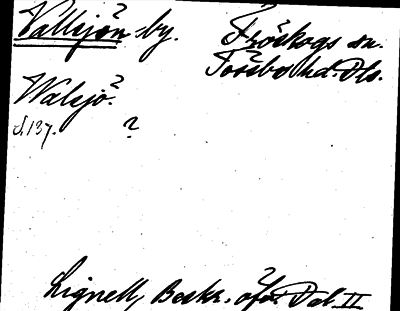 Vallsjön by. Fröskogs sn.
Tössbo hd. Dls.
Walsjö.
s. 137. ?
Lignell, Beskr. öfver Dal. II